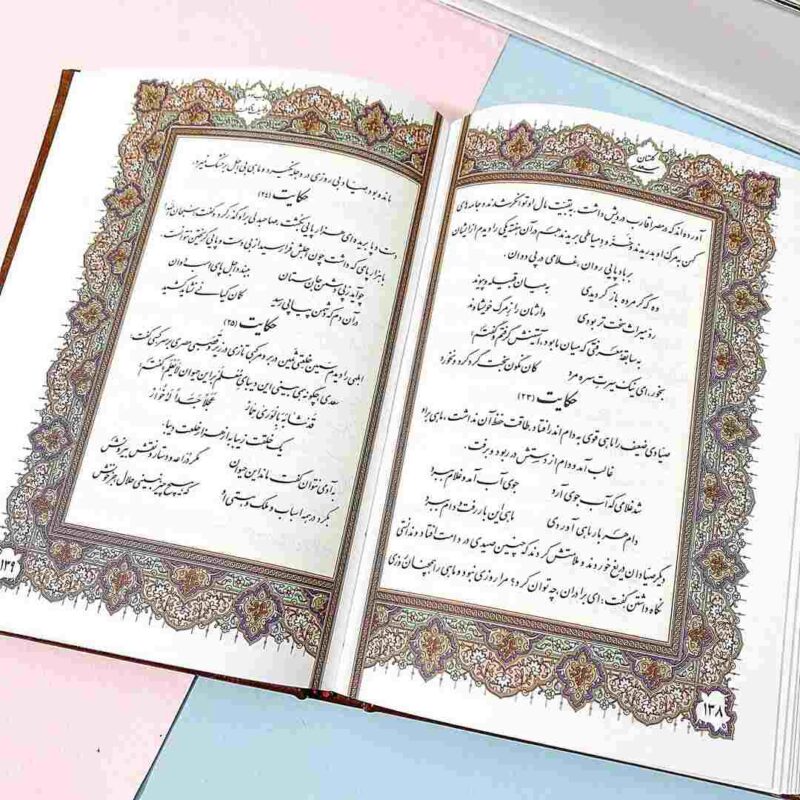 گلستان
آورده‌اند که در مصر اقارب درویش داشت. به بقیت مال او توانگر شدند و جامه‌های
کهن به مرگ او بدریدند و خز و دمیاطی بریدند هم در آن هفته یکی را دیدم از ایشان
بر بادپایی روان، غلامی در پی دوان.
وه که گر مرده باز گردیدی
به میان قبیله و پیوند
رد میراث سخت‌تر بودی
وارثان را ز مرگ خویشاوند
به سابقه معرفتی که میان ما بود، آستینش گرفتم گفتم:
بخور، ای نیک سیرت سره مرد
کان نگون بخت گرد کرد و نخورد
حکایت
(۲۳)
صیادی ضعیف را ماهی قوی به دام اندر افتاد، طاقت حفظ آن نداشت، ماهی بر او
غالب آمد و دام از دستش در ربود و برفت.
شد غلامی که آب جوی آرد
جوی آب آمد و غلام ببرد
دام هر بار ماهی آوردی
ماهی این بار رفت و دام ببرد
دیگر صیادان دریغ خوردند و ملامتش کردند که چنین صیدی در دامت افتاد و ندانستی
نگاه داشتن گفت: ای برادران، چه توان کرد؟ مرا روزی نبود و ماهی را همچنان روزی
۱۳۸
مانده بود صیاد بی روزی در دجله نگیرد و ماهی بی اجل بر خشک نمیرد.
حکایت
(۲۴)
دست و پا بریده‌ای هزارپایی بکشت. صاحبدلی بر او گذر کرد و گفت سبحان الله!
با هزار پای که داشت چون اجلش فرا رسید از بی دست و پایی گریختن نتوانست.
چو آید ز پی دشمن جان ستان
ببندد اجل پای اسب دوان
در آن دم که دشمن پیاپی رسید
کمان کیانی نشاید کشید
حکایت
(۲۵)
ابلهی را دیدم سمین خلعتی ثمین در بر و مرکبی تازی در زیر و قصبی مصری بر سر کسی گفت
سعدی چگونه همی بینی این دیبای معلم بر این حیوان لا یعلم گفتم:
قد شابه بالوری حمار
عجلا جسدا له خوار
یک خلقت زیبا به از هزار خلعت دیبا.
به آدمی نتوان گفت ماند این حیوان
مگر دراعه و دستار و نقش بیرونش
بگرد در همه اسباب و ملک و هستی او
که هیچ چیز نبینی حلال جز خونش
۱۳۹